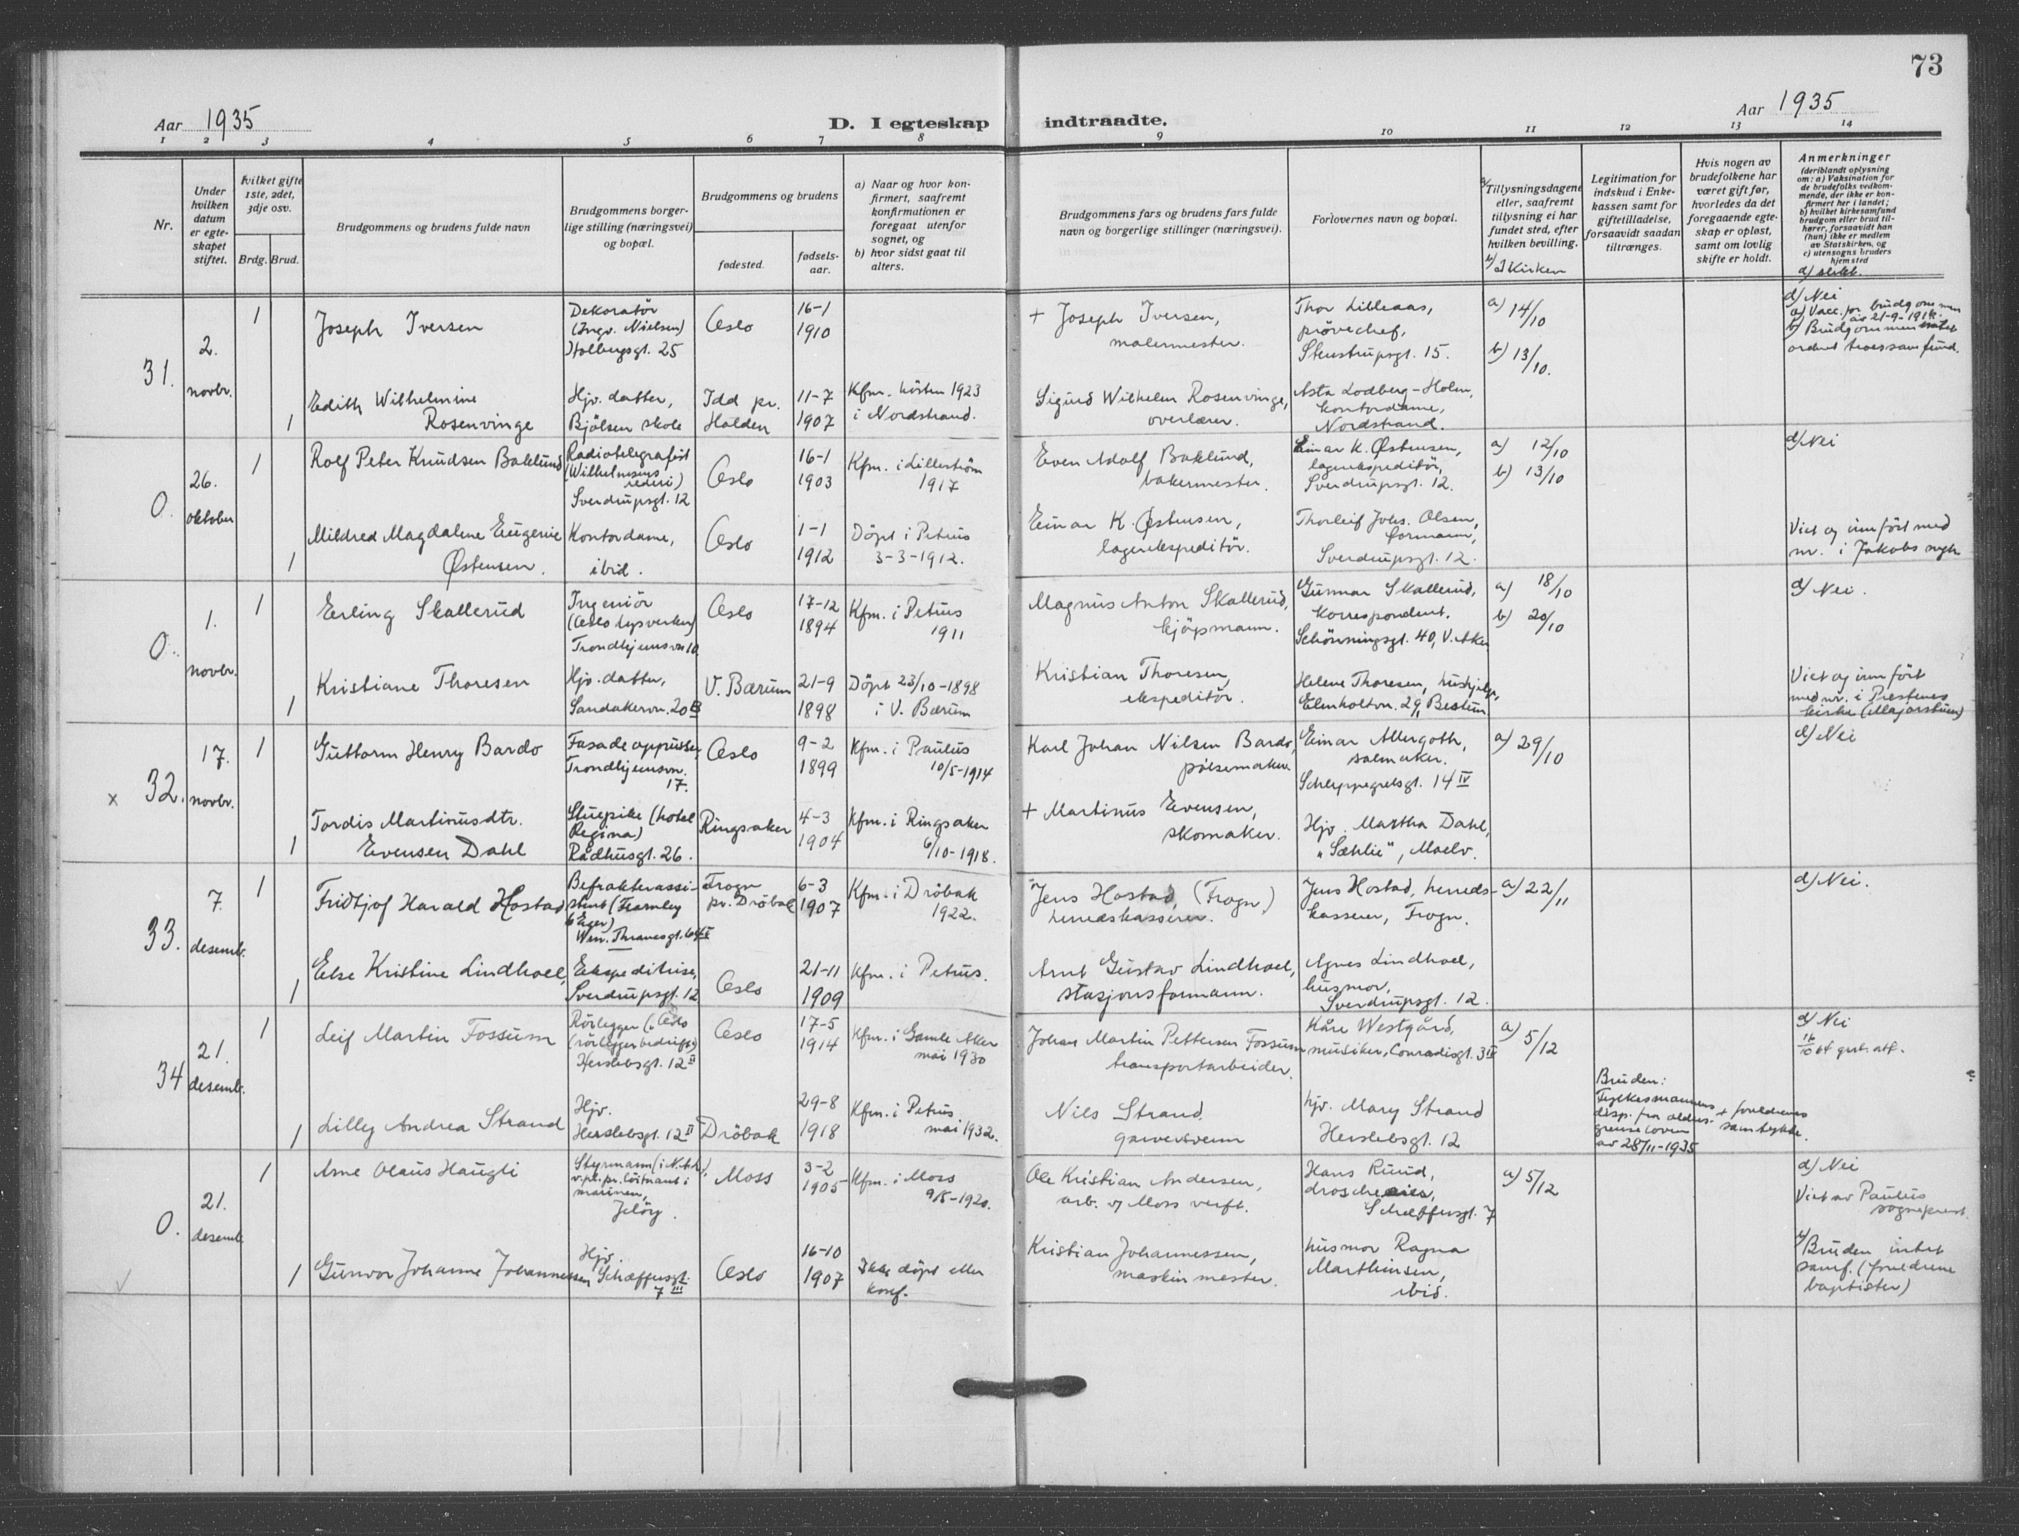 73
Aar 1935
D. I egteskap
indtraadte.
Aar 1935
1 2 3 4 5 6 7 8 9 10 11 12 13 14
Nr.
Under hvilken datum er egteskapet stiftet.
hvilket gifte 1ste, 2det, 3dje osv.
Brdg. Brud.
Brudgommens og brudens fulde navn
Brudgommens borgerlige stilling (næringsvei) og bopæl.
Brudgommens og brudens
fødested.
fødselsaar.
a) Naar og hvor konfirmert, saafremt konfirmationen er foregaat utenfor sognet, og
b) hvor sidst gaat til alters.
Brudgommens fars og brudens fars fulde navn og borgerlige stillinger (næringsvei).
Forlovernes navn og bopæl.
a/ Tillysningsdagene eller, saafremt tillysning ei har fundet sted, efter hvilken bevilling.
b/ I Kirken
Legitimation for indskud i Enkekassen samt for giftetilladelse, forsaavidt saadan tiltrænges.
Hvis nogen av brudefolkene har været gift før, hvorledes da det foregaaende egteskap er opløst, samt om lovlig skifte er holdt.
Anmerkninger
(deriblandt oplysning om: a) Vaksination for de brudefolks vedkommende, der ikke er konfirmert her i landet; b) hvilket kirkesamfund brudgom eller brud tilhører, forsaavidt han (hun) ikke er medlem av Statskirken, og c) utensogns bruders hjemsted
d) slekt.
31.
2. novbr.
1
Joseph Iversen
Dekoratør
(Ingv. Nielsen)
Holbergsgt. 25
Oslo
16-1
1910
+ Joseph Iversen,
malermester.
Thor Lilleaas,
prøvechef,
Stenstrupsgt. 15.
a) 14/10
b) 13/10.
d) Nei
a) Vacc. for brudgommen
av 21-9-1914
b) Brudgommen intet
ordnet troessamfund.
1
Edith Wilhelmine
Rosenvinge
Hjv. datter,
Bjølsen skole
Idd pr.
Halden
11-7
1907
Kfm. høsten 1923
i Nordstrand.
Sigurd Wilhelm Rosenvinge,
overlærer.
Asta Lodberg-Holm,
kontordame,
Nordstrand.
0.
26. oktober
1
Rolf Peter Knudsen Baklund
Radiotelegrafist
(Wilhelmsens
rederi)
Sverdrupsgt. 12
Oslo
16-1
1903
Kfm. i Lillestrøm
1917
Even Adolf Baklund,
bakermester.
Einar K. Østensen,
lagerekspeditør,
Sverdrupsgt. 12.
a) 12/10
b) 13/10
d) Nei
1
Mildred Magdalene Eugenie
Østensen.
Kontordame,
ibid.
Oslo
1-1
1912
Døpt i Petrus
3-3-1912.
Einar K. Østensen,
lagerekspeditør.
Thorleif Johs. Olsen,
formann,
Sverdrupsgt. 12.
Viet og innført med
nr. i Jakobs
0.
1. novbr.
1
Erling Skallerud
Ingeniør
(Oslo lysverker)
Trondhjemsvn 10.
Oslo
17-12
1894
Kfm. i Petrus
1911
Magnus Anton Skallerud,
kjøpmann.
Gunnar Skallerud,
korrespondent.
Schønningsgt. 40, V. Aker
a) 18/10
b) 20/10
d) Nei.
1
Kristiane Thoresen
Hjv. datter,
Sandakervn. 20 B
V. Bærum
21-9
1898
Døpt 23/10-1898
i V. Bærum
Kristian Thoresen,
ekspeditør.
Helene Thoresen, hushjelp,
Elmholtvn. 29, Bestum
Viet og innført
med nr. i Prestenes
kirke (Majorstuen)
x 32.
17. novbr.
1
Guttorm Henry Bardo
Fasadeoppusser,
Trondhjemsvn.
17.
Oslo
9-2
1899
Kfm. i Paulus
10/5-1914
Karl Johan Nilsen Bardo,
pølsemaker.
Einar Allergoth,
salmaker.
Schleppegrelsgt. 14 IV
a) 29/10
d) Nei
1
Tordis Martinusdtr.
Evensen Dahl
Stuepike (hotel
Regina)
Rådhusgt. 26.
Ringsaker
4-3
1904
Kfm. i Ringsaker
6/10-1918.
+ Martinus Evensen,
skomaker.
Hjv. Martha Dahl,
"Sæhlie", Moelv.
33.
7. desemb.
1
Fridtjof Harald Hostad
Befrakterassistent
(Fearnley
& Eger)
Wm. Thranesgt. 64 V
Frogn
pr. Drøbak
6-3
1907
Kfm. i Drøbak
1922.
Jens Hostad, (Frogn)
herredskasserer.
Jens Hostad, herredskasserer,
Frogn.
a) 22/11
d) Nei.
1
Else Kristine Lindhoel,
Ekspeditrise,
Sverdrupsgt. 12
Oslo
21-11
1909
Kfm. i Petrus.
Arnt Gustav Lindhoel,
stasjonsformann.
Agnes Lindhoel,
husmor,
Sverdrupsgt. 12.
34
21. desemb.
1
Leif Martin Fossum
Rørlegger (i Oslo
rørleggerbedrift)
Herslebsgt. 12 II
Oslo
17-5
1914
Kfm. i Gamle Aker
mai 1930
Johan Martin Pettersen Fossum
transportarbeider.
Kåre Westgård,
musiker, Conradisgt. 3 IV
a) 5/12
d) Nei
1
Lilly Andrea Strand
Hjv.
Herslebsgt. 12 II
Drøbak
29-8
1918
Kfm. i Petrus
mai 1932.
Nils Strand
garversvenn
hjv. Mary Strand
Herslebsgt. 12
Bruden:
Fylkesmannens
disp. fra aldersgrense
loven
av 28/11-1935
+ foreldrenes
samtykke.
0.
21. desemb.
1
Arne Olaus Haugli
Styrmann
v.pl. pr. løitnant i
marinen,
Jeløy.
Moss
3-2
1905
Kfm. i Moss
9/5-1920.
Ole Kristian Andersen,
arb. v/ Moss verft.
Hans Ruud,
droscheeier,
Schæffersgt. 7
a) 5/12
d) Nei
Viet av Paulus
sogneprest.
1
Gunvor Johanne Johannessen
Hjv.
Schæffersgt.
7 III
Oslo
16-10
1907
Ikke døpt eller
konf.
Kristian Johannessen,
maskinmester.
husmor Ragna
Marthinsen,
ibid.
b/ Bruden intet
samf. (foreldrene
baptister)